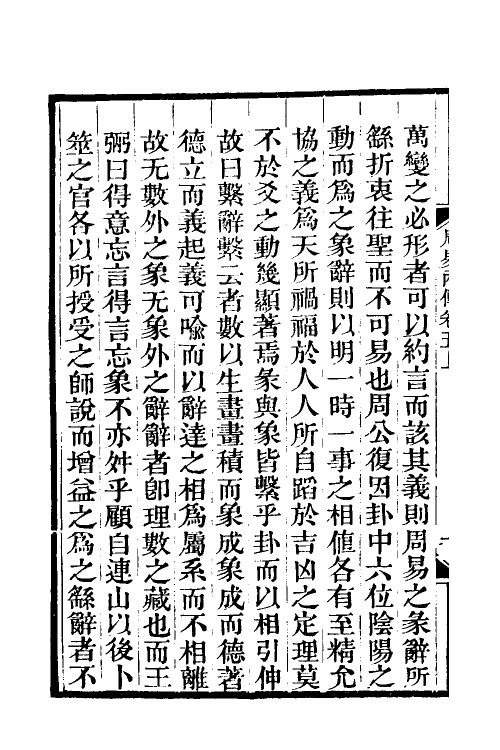 萬變之必形者可以約言而該其義則周易之彖辭所
繇折衷往聖而不可易也周公復因卦中六位陰陽之
動而爲之象辭則以明一時一事之相值各有至精允
協之義爲天所禍福於人人所自蹈於吉凶之定理莫
不於爻之動幾顯著焉彖與象皆繫乎卦而以相引伸
故曰繫辭繫云者數以生畫畫積而象成象成而德著
德立而義起義可喩而以辭達之相爲屬系而不相離
故无數外之象无象外之辭辭者卽理數之藏也而王
弼曰得意忘言得言忘象不亦舛乎顧自連山以後卜
筮之官各以所授受之師說而增益之爲之繇辭者不